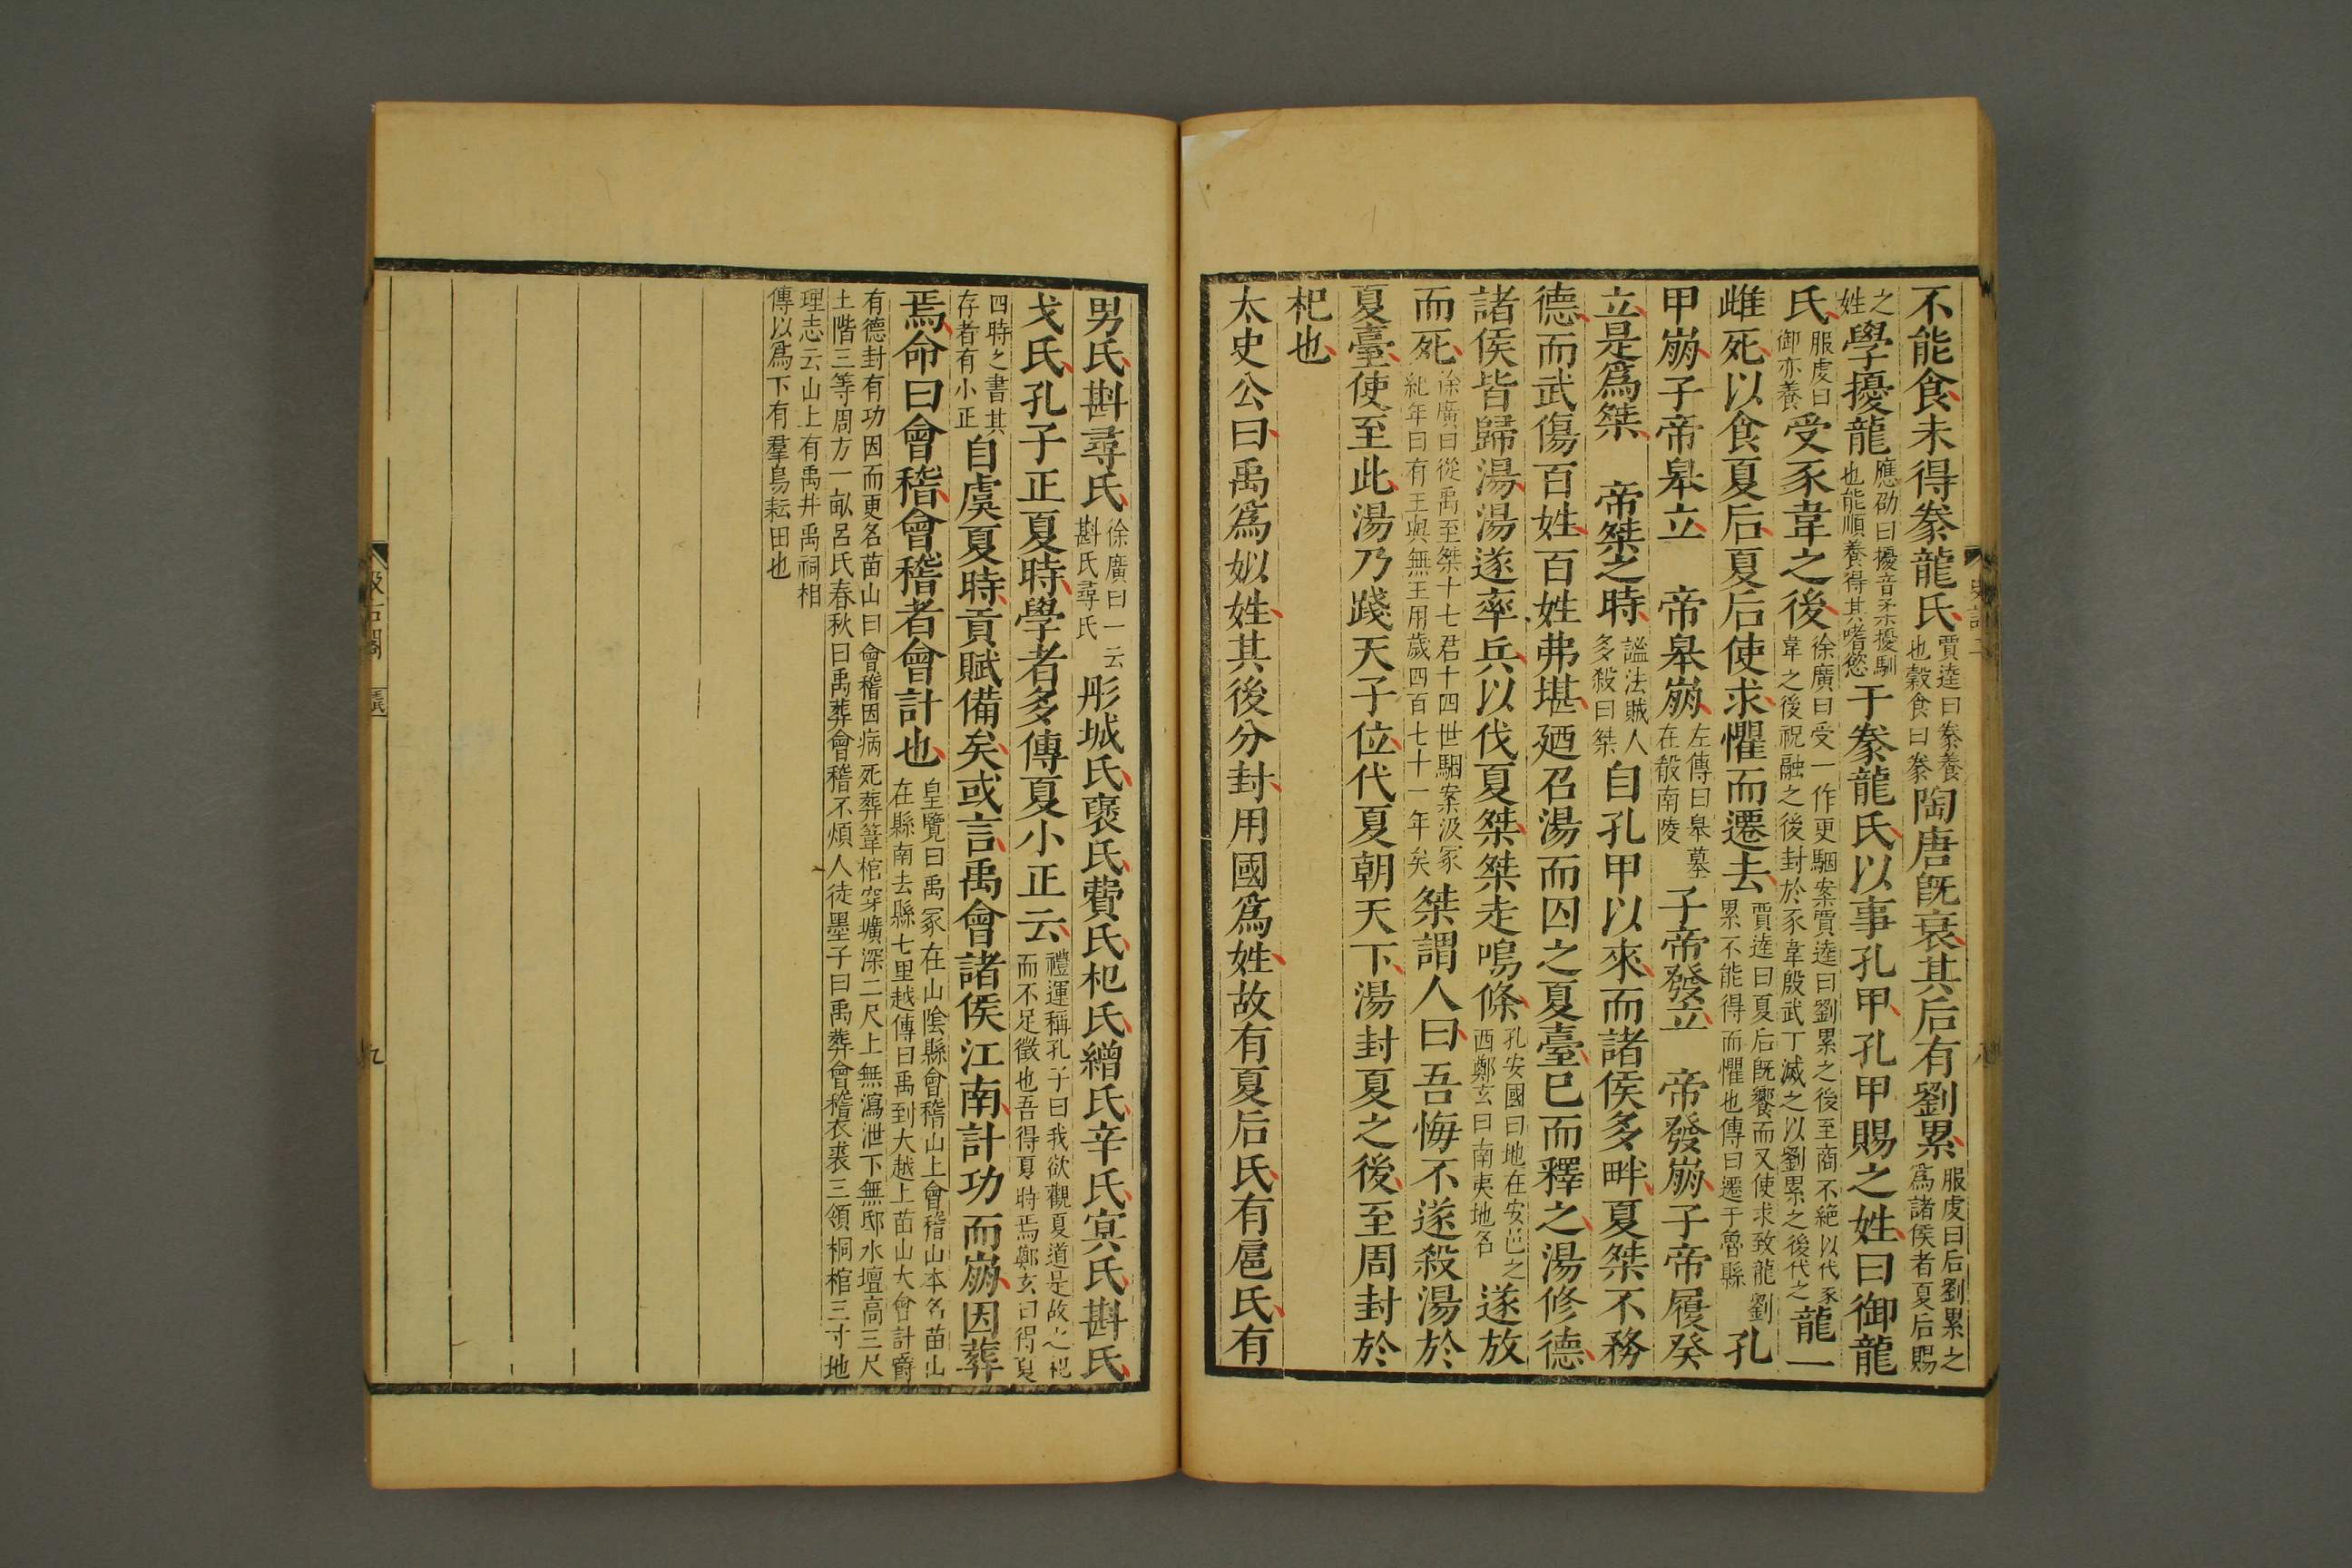 不能食未得豢龍氏賈逵曰豢養也穀食曰豢陶唐旣衰其后有劉累服虔曰后劉累之爲諸侯者夏后賜
之姓學擾龍應劭曰擾音柔擾馴也能順養得其嗜慾于豢龍氏以事孔甲孔甲賜之姓曰御龍
氏服虔曰御亦養受豕韋之後徐廣曰受一作更駰案賈逵曰劉累之後至商不絕以代豕韋之後祝融之後封於豕韋殷武丁滅之以劉累之後代之龍一
雌死以食夏后夏后使求懼而遷去賈逵曰夏后旣饗而又使求致龍劉累不能得而懼也傳曰遷于魯縣孔
甲崩子帝皐立　帝皐崩左傳曰皐墓在殽南陵子帝發立　帝發崩子帝履癸
立是爲桀　帝桀之時諡法賊人多殺曰桀自孔甲以來而諸侯多畔夏桀不務
德而武傷百姓百姓弗堪廼召湯而囚之夏臺已而釋之湯修德
諸侯皆歸湯湯遂率兵以伐夏桀桀走鳴條孔安國曰地在安邑之西鄭玄曰南夷地名遂放
而死徐廣曰從禹至桀十七君十四世駰案汲冢紀年曰有王與無王用歲四百七十一年矣桀謂人曰吾悔不遂殺湯於
夏臺使至此湯乃踐天子位代夏朝天下湯封夏之後至周封於
杞也
太史公曰禹爲姒姓其後分封用國爲姓故有夏后氏有扈氏有
男氏斟尋氏徐廣曰一云斟氏尋氏彤城氏褒氏費氏杞氏繒氏辛氏冥氏斟氏
戈氏孔子正夏時學者多傳夏小正云禮運稱孔子曰我欲觀夏道是故之杞而不足徵也吾得夏時焉鄭玄曰得夏
四時之書其存者有小正自虞夏時貢賦備矣或言禹會諸侯江南計功而崩因葬
焉命曰會稽會稽者會計也皇覽曰禹冢在山陰縣會稽山上會稽山本名苗山在縣南去縣七里越傳曰禹到大越上苗山大會計爵
有德封有功因而更名苗山曰會稽因病死葬葦棺穿壙深二尺上無瀉泄下無邸水壇高三尺土階三等周方一畝呂氏春秋曰禹葬會稽不煩人徒墨子曰禹葬會稽衣裘三領桐棺三寸地
理志云山上有禹井禹祠相傳以爲下有羣鳥耘田也
史記二
八
九